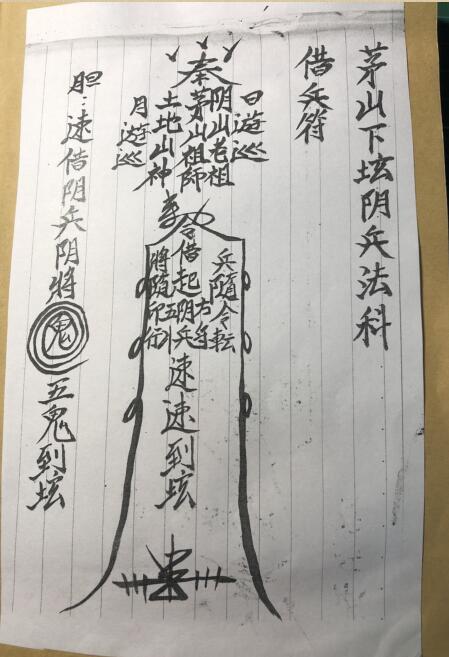 茅山下坛阴兵法科
借兵符
奉
日遊巡
阴山老祖
茅山祖師
土地山神
月遊巡
兵隨令転
令借起阴兵速速到坛
將隨印行
胆：速借阴兵阴將鬼五鬼到坛